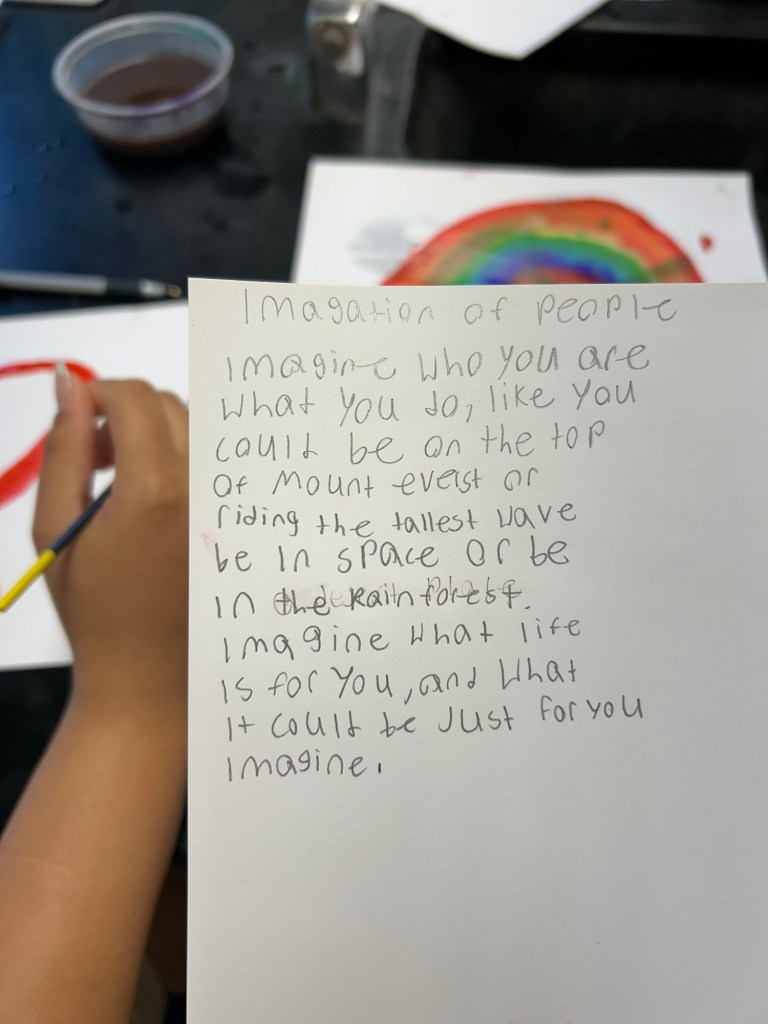 Imagation of people
Imagine who you are
what you do, like you
could be on the top
of mount everst or
riding the tallest wave
be in space or be
in the rainforest.
Imagine what life
is for you, and what
it could be just for you
imagine.